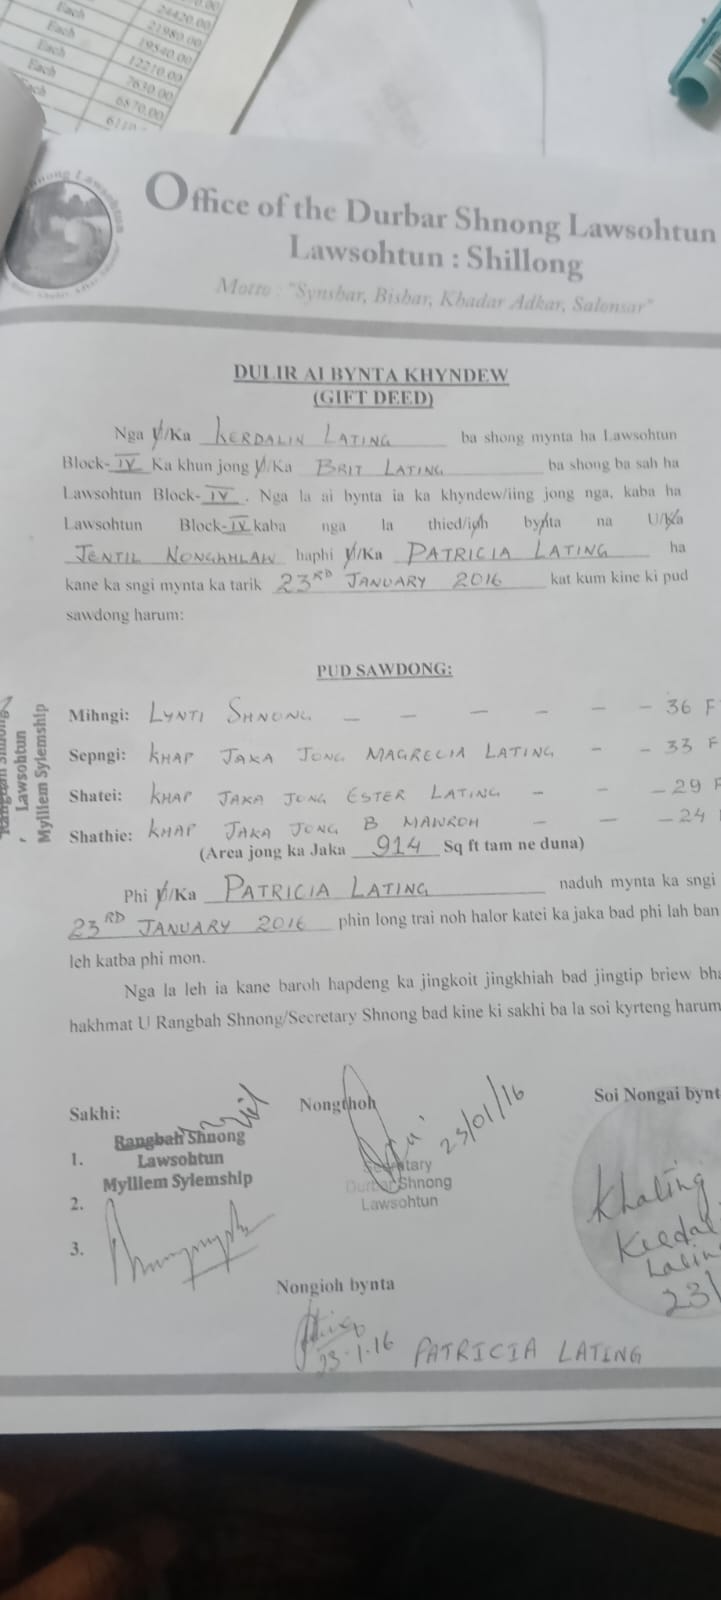 Each
24420.00
Each
21980.00
Each
19540.00
Each
12210.00
Each
7630.00
6870.00
Office of the Durbar Shnong Lawsohtun
Lawsohtun : Shillong
Motto : "Synshar, Bishar, Khadar Adkar, Salonsar"
DULIR AI BYNTA KHYNDEW
(GIFT DEED)
Nga U/Ka KERDALIN LATING ba shong mynta ha Lawsohtun
Block-IV Ka khun jong U/Ka BRIT LATING ba shong ba sah ha
Lawsohtun Block-IV. Nga la ai bynta ia ka khyndew/iing jong nga, kaba ha
Lawsohtun Block-IV kaba nga la thied/ioh bynta na U/Ka
JENTIL NONGKHLAW haphi U/Ka PATRICIA LATING ha
kane ka sngi mynta ka tarik 23RD JANUARY 2016 kat kum kine ki pud
sawdong harum:
PUD SAWDONG:
Mihngi: LYNTI SHNONG - - - - - - 36 F
Sepngi: KHAP JAKA JONG MAGRECIA LATING - - 33 F
Shatei: KHAP JAKA JONG ESTER LATING - - - 29 F
Shathie: KHAP JAKA JONG B MAWROH - - - 24
(Area jong ka Jaka 914 Sq ft tam ne duna)
Phi U/Ka PATRICIA LATING naduh mynta ka sngi
23RD JANUARY 2016 phin long trai noh halor katei ka jaka bad phi lah ban
leh katba phi mon.
Nga la leh ia kane baroh hapdeng ka jingkoit jingkhiah bad jingtip briew bha
hakhmat U Rangbah Shnong/Secretary Shnong bad kine ki sakhi ba la soi kyrteng harum
Lawsohtun
Mylliem Syiemship
Sakhi:
Nongthoh
23/01/16
Soi Nongai bynt
1.
Rangbah Shnong
Lawsohtun
Mylliem Syiemship
Secretary
Durbar Shnong
Lawsohtun
2.
3.
23/
Nongioh bynta
23.1.16 PATRICIA LATING